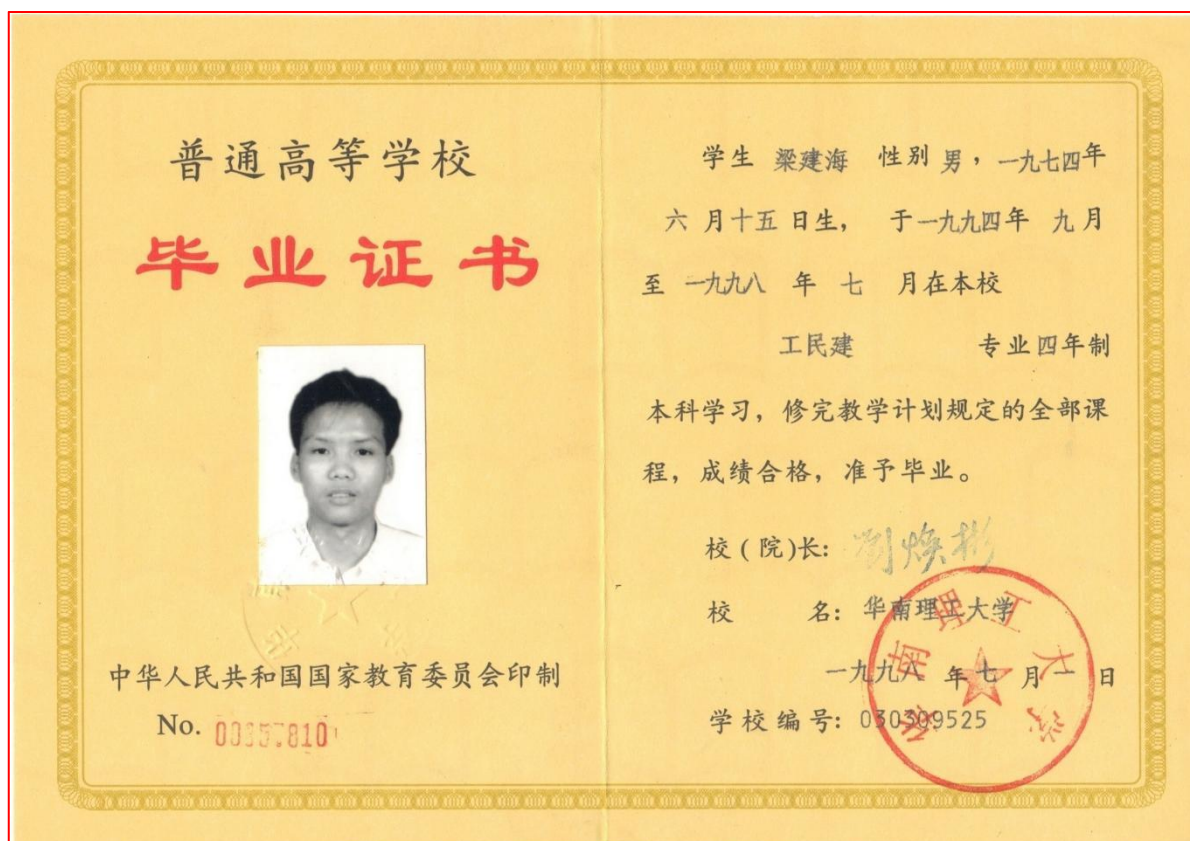 普通高等学校
毕业证书
中华人民共和国国家教育委员会印制
No.
学生 梁建海 性别 男，一九七四年
六 月十五 日生， 于一九九四年 九月
至 一九九八 年 七 月在本校
工民建 专业四年制
本科学习，修完教学计划规定的全部课
程，成绩合格，准予毕业。
校(院)长: 刘焕彬
校 名: 华南理工大学
一九九八 年七 月一日
学校编号: 030309525
华南理工大学